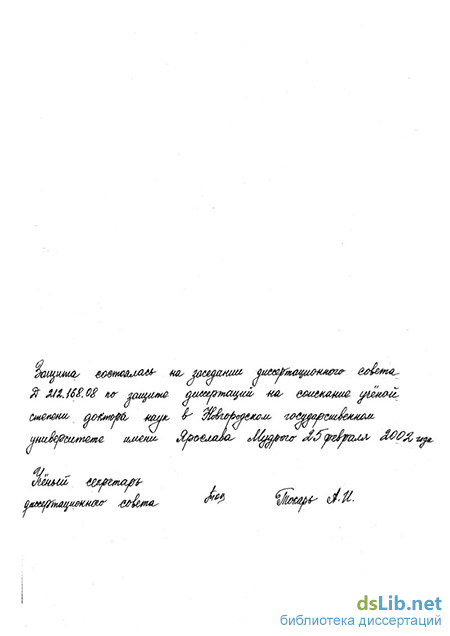 Защита состоялась на заседании диссертационного совета
Д 212.168.08 по защите диссертаций на соискание учёной
степени доктора наук в Новгородском государственном
университете имени Ярослава Мудрого 25 февраля 2002 года
Учёный секретарь
диссертационного совета Токарь А.И.
dsLib.net
библиотека диссертаций